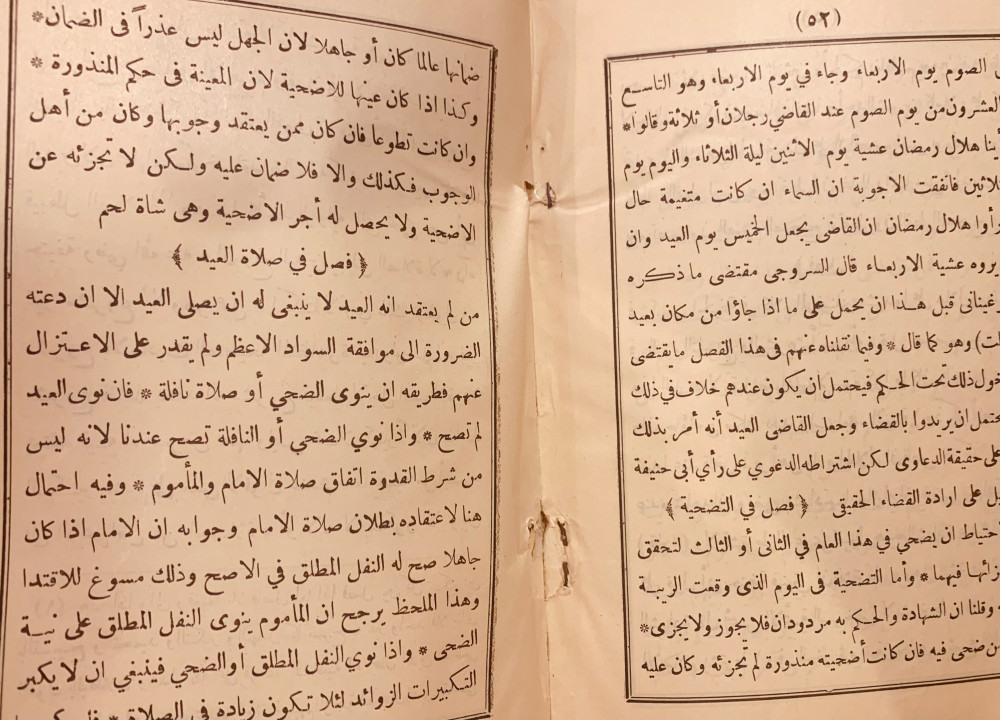 (٥٢)
الصوم يوم الاربعاء وجاء في يوم الاربعاء وهو التاسع
العشرون من يوم الصوم عند القاضي رجلان أو ثلاثة وقالوا*
هلال رمضان عشية يوم الاثنين ليلة الثلاثاء واليوم يوم
فاتفقت الاجوبة ان السماء ان كانت متغيمة حال
رأوا هلال رمضان ان القاضى يجعل الخميس يوم العيد وان
يروه عشية الاربعاء قال السروجى مقتضى ماذكره
قبل هذا ان يحمل على ما اذا جاؤا من مكان بعيد
وهو كما قال * وفيما نقلناه عنهم فى هذا الفصل ما يقتضى
ذلك تحت الحكم فيحتمل ان يكون عندهم خلاف في ذلك
ان يريدوا بالقضاء وجعل القاضى العيد أنه أمر بذلك
على حقيقة الدعاوى لكن اشتراطه الدعوي على رأي أبى حنيفة
على ارادة القضاء الحقيقى ﴿ فصل في التضحية ﴾
ان يضحي في هذا العام في الثانى أو الثالث لتحقق
فيهما * وأما التضحية فى اليوم الذى وقعت الريبة
وقلنا ان الشهادة والحكم به مردودان فلا يجوز ولا يجزى *
ضحى فيه فان كانت أضحيته منذورة لم تجزئه وكان عليه
ضمانها عالما كان أو جاهلا لان الجهل ليس عذراً فى الضمان*
وكذا اذا كان عينها للاضحية لان المعينة فى حكم المنذورة *
وان كانت تطوعا فان كان ممن يعتقد وجوبها وكان من أهل
الوجوب فكذلك والا فلا ضمان عليه ولكن لا تجزئه عن
الاضحية ولا يحصل له أجر الاضحية وهى شاة لحم
﴿ فصل في صلاة العيد ﴾
من لم يعتقد انه العيد لا ينبغى له ان يصلى العيد الا ان دعته
الضرورة الى موافقة السواد الاعظم ولم يقدر على الاعتزال
عنهم فطريقه ان ينوى الضحي أو صلاة نافلة * فان نوى العيد
لم تصح * واذا نوي الضحى أو النافلة تصح عندنا لانه ليس
من شرط القدوة اتفاق صلاة الامام والمأموم * وفيه احتمال
هنا لاعتقاده بطلان صلاة الامام وجوابه ان الامام اذا كان
جاهلا صح له النفل المطلق في الاصح وذلك مسوغ للاقتدا
وهذا الملحظ يرجح ان المأموم ينوى النفل المطلق على نية
الضحى * واذا نوي النفل المطلق أو الضحي فينبغي ان لا يكبر
التكبيرات الزوائد لئلا تكون زيادة في الصلاة *